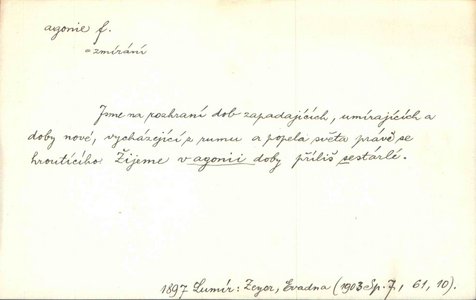 agonie f.
= zmírání
Jsme na rozhraní dob zapadajících, umírajících a
doby nové, vycházející z rumu a popela světa právě se
hroutícího. Žijeme v agonii doby příliš sestárlé.
1897 Lumír: Zeyer, Evadna (1903 Sp. 7, 61, 10).